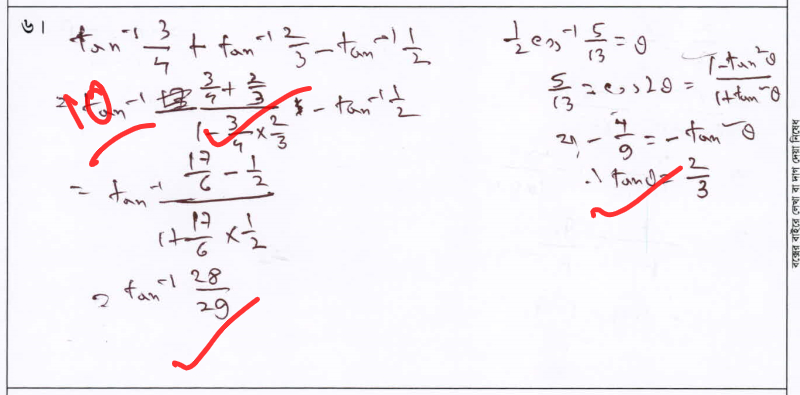 ৬।
tan⁻¹ 3/4 + tan⁻¹ 2/3 − tan⁻¹ 1/2
= tan⁻¹ (3/4 + 2/3)/(1 − 3/4 × 2/3) − tan⁻¹ 1/2
10
= tan⁻¹ (17/6 − 1/2)/(1 + 17/6 × 1/2)
= tan⁻¹ 28/29
1/2 cos⁻¹ 5/13 = θ
5/13 = cos 2θ = (1 − tan²θ)/(1 + tan²θ)
− 4/9 = − tan²θ
∴ tanθ = 2/3
বক্সের বাইরে লেখা বা দাগ দেয়া নিষেধ